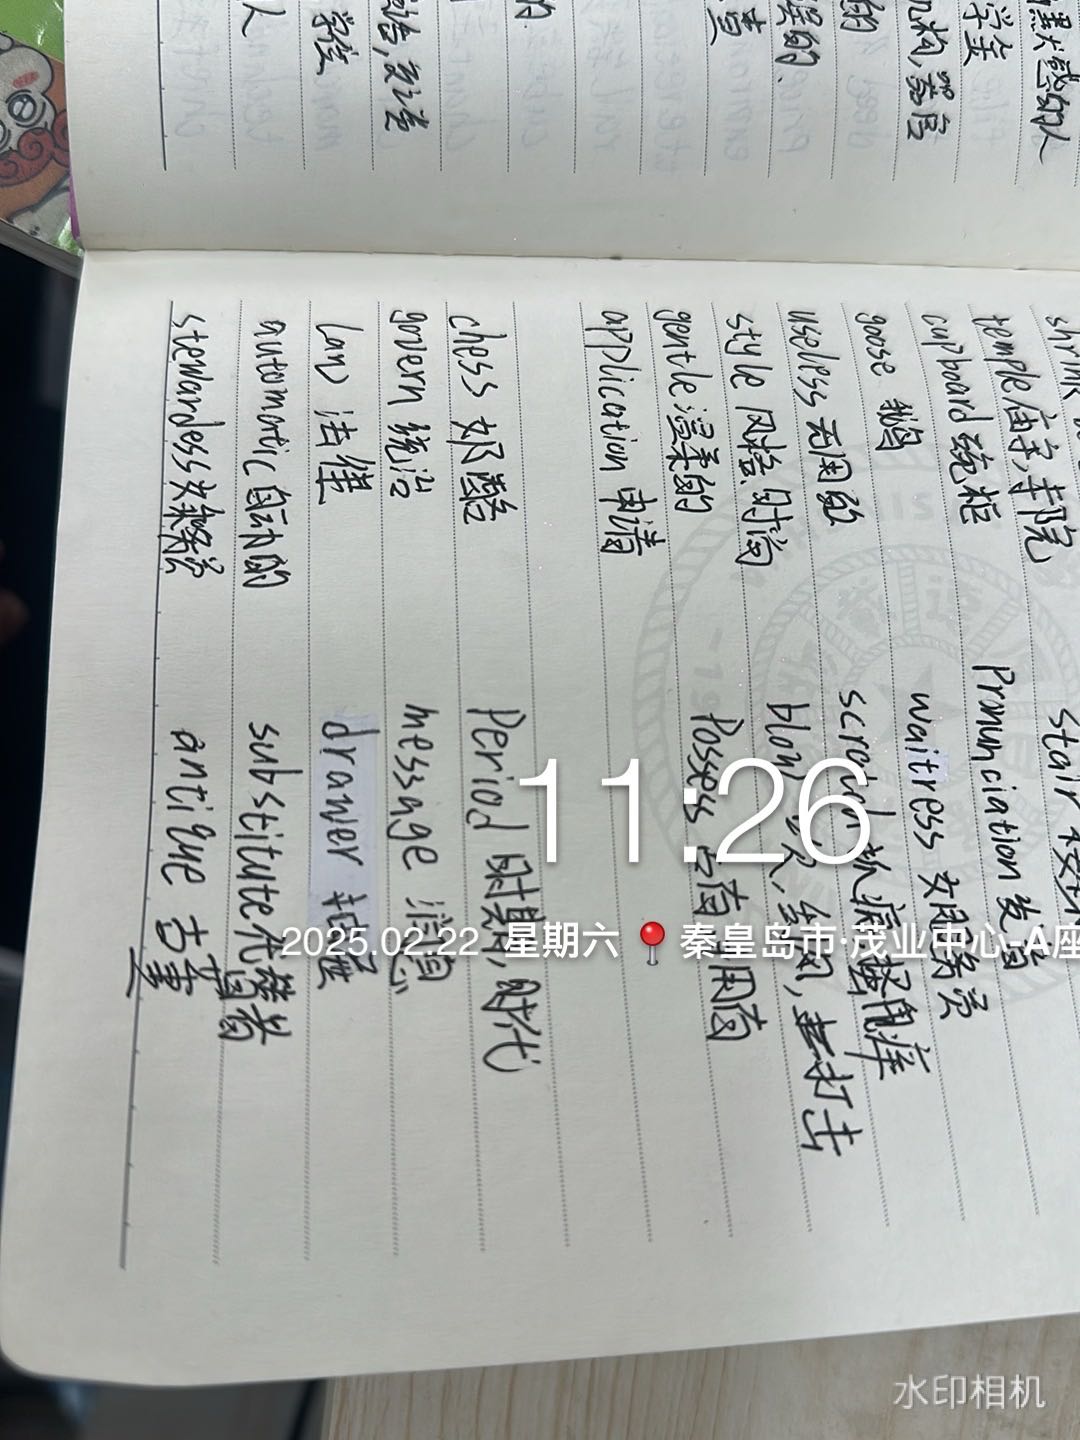 人
学校
的
的
学金
机构,器官
shrink
temple 庙宇,寺院
cupboard 碗柜
goose 鹅
useless 无用的
style 风格 时尚
gentle 温柔的
application 申请
chess 奶酪
govern 统治
law 法律
automatic 自动的
stewardess 女乘务员
stair
Pronunciation 发音
waitress 女服务员
scratch 抓痕 搔 痒
blow 打击
Possess 占有 拥有
Period 时期,时代
message 消息
drawer 抽屉
substitute 代替者
antique 古董
11:26
2025.02.22 星期六 📍秦皇岛市·茂业中心-A座
水印相机